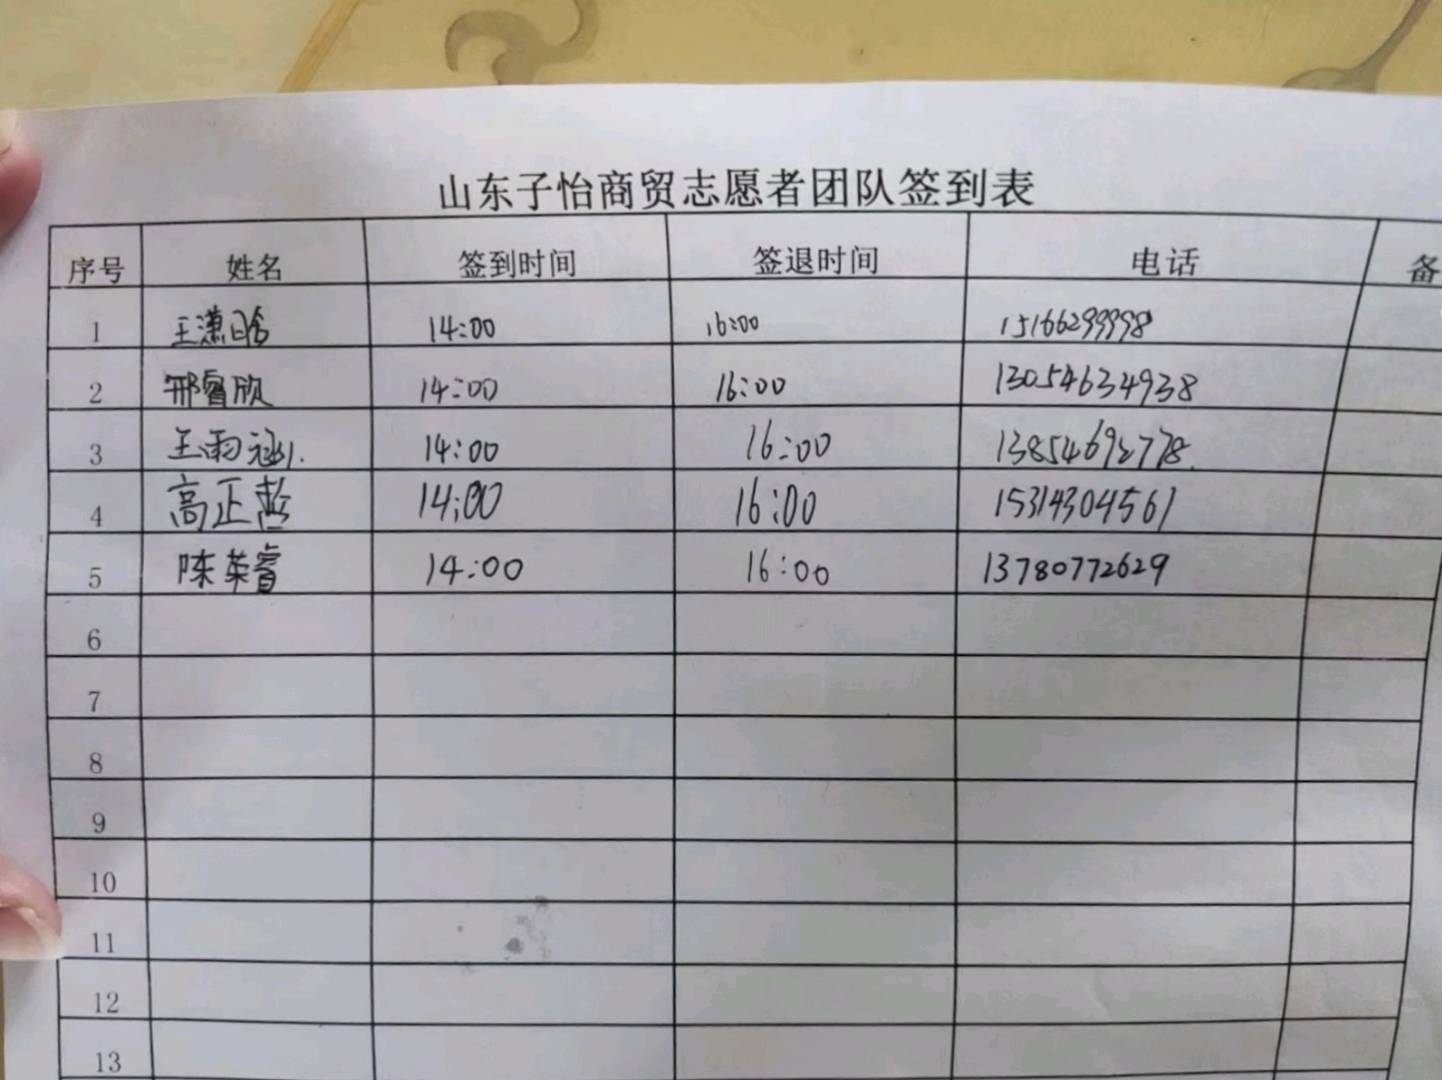 山东子怡商贸志愿者团队签到表
序号 姓名 签到时间 签退时间 电话 备
1 王潇晗 14:00 16:00 15166299998
2 邢睿欣 14:00 16:00 13054634938
3 王雨涵 14:00 16:00 13854692778
4 高正 14:00 16:00 15314304561
5 陈荣睿 14:00 16:00 13780772629
6
7
8
9
10
11
12
13